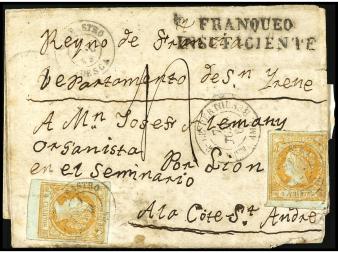 FRANQUEO
INSUFICIENTE
Reyno de Francia
Departamento de Sn Irene
A Mn Josef Alemany
Organista
en el Seminario
Por Lion
A la Côte St André